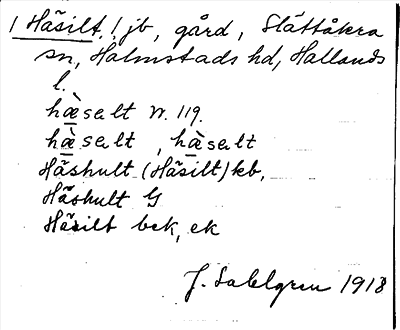 / Håsilt / jb, gård, Slättåkra
sn, Halmstads hd, Hallands
l.
hæ̀salt W. 119.
hæ̀salt, hæ̀salt
Håshult (Håsilt) kb,
Håshult G
Håsilt bek, ek
J. Sahlgren 1918